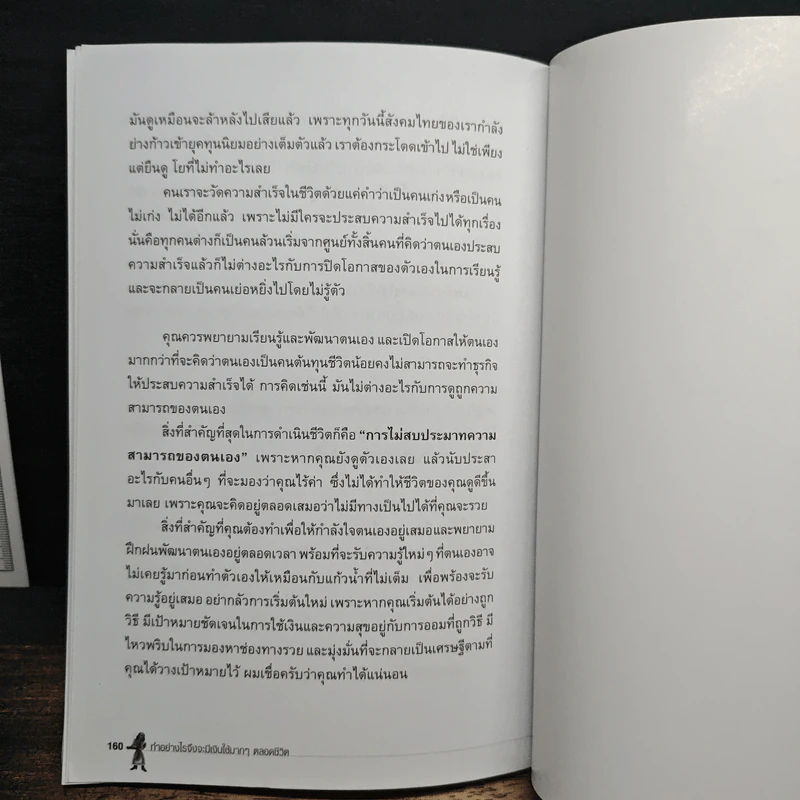 มันดูเหมือนจะล้าหลังไปเสียแล้ว เพราะทุกวันนี้สังคมไทยของเรากำลัง
ย่างก้าวเข้ายุคทุนนิยมอย่างเต็มตัวแล้ว เราต้องกระโดดเข้าไป ไม่ใช่เพียง
แต่ยืนดู โยที่ไม่ทำอะไรเลย
คนเราจะวัดความสำเร็จในชีวิตด้วยแค่คำว่าเป็นคนเก่งหรือเป็นคน
ไม่เก่ง ไม่ได้อีกแล้ว เพราะไม่มีใครจะประสบความสำเร็จไปได้ทุกเรื่อง
นั่นคือทุกคนต่างก็เป็นคนล้วนเริ่มจากศูนย์ทั้งสิ้นคนที่คิดว่าตนเองประสบ
ความสำเร็จแล้วก็ไม่ต่างอะไรกับการปิดโอกาสของตัวเองในการเรียนรู้
และจะกลายเป็นคนเย่อหยิ่งไปโดยไม่รู้ตัว
คุณควรพยายามเรียนรู้และพัฒนาตนเอง และเปิดโอกาสให้ตนเอง
มากกว่าที่จะคิดว่าตนเองเป็นคนต้นทุนชีวิตน้อยคงไม่สามารถจะทำธุรกิจ
ให้ประสบความสำเร็จได้ การคิดเช่นนี้ มันไม่ต่างอะไรกับการดูถูกความ
สามารถของตนเอง
สิ่งที่สำคัญที่สุดในการดำเนินชีวิตก็คือ “การไม่สบประมาทความ
สามารถของตนเอง” เพราะหากคุณยังดูตัวเองเลย แล้วนับประสา
อะไรกับคนอื่นๆ ที่จะมองว่าคุณไร้ค่า ซึ่งไม่ได้ทำให้ชีวิตของคุณดูดีขึ้น
มาเลย เพราะคุณจะคิดอยู่ตลอดเสมอว่าไม่มีทางเป็นไปได้ที่คุณจะรวย
สิ่งที่สำคัญที่คุณต้องทำเพื่อให้กำลังใจตนเองอยู่เสมอและพยายาม
ฝึกฝนพัฒนาตนเองอยู่ตลอดเวลา พร้อมที่จะรับความรู้ใหม่ๆ ที่ตนเองอาจ
ไม่เคยรู้มาก่อนทำตัวเองให้เหมือนกับแก้วน้ำที่ไม่เต็ม เพื่อพร้องจะรับ
ความรู้อยู่เสมอ อย่ากลัวการเริ่มต้นใหม่ เพราะหากคุณเริ่มต้นได้อย่างถูก
วิธี มีเป้าหมายชัดเจนในการใช้เงินและความสุขอยู่กับการออมที่ถูกวิธี มี
ไหวพริบในการมองหาช่องทางรวย และมุ่งมั่นที่จะกลายเป็นเศรษฐีตามที่
คุณได้วางเป้าหมายไว้ ผมเชื่อครับว่าคุณทำได้แน่นอน
160 ทำอย่างไรจึงจะมีเงินใช้มากๆ ตลอดชีวิต